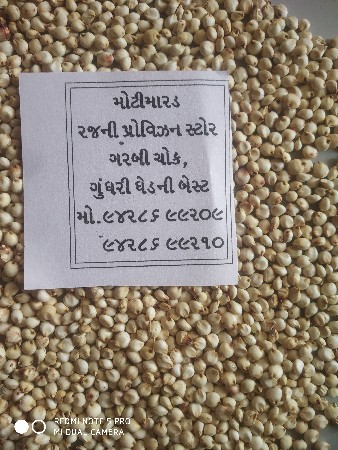 મોટીમારડ
રજની પ્રોવિઝન સ્ટોર
ગરબી ચોક,
ગુંધરી ઘેડની બેસ્ટ
મો.૯૪૨૮૬ ૯૯૨૦૯
૯૪૨૮૬ ૯૯૨૧૦
REDMI NOTE 5 PRO
MI DUAL CAMERA